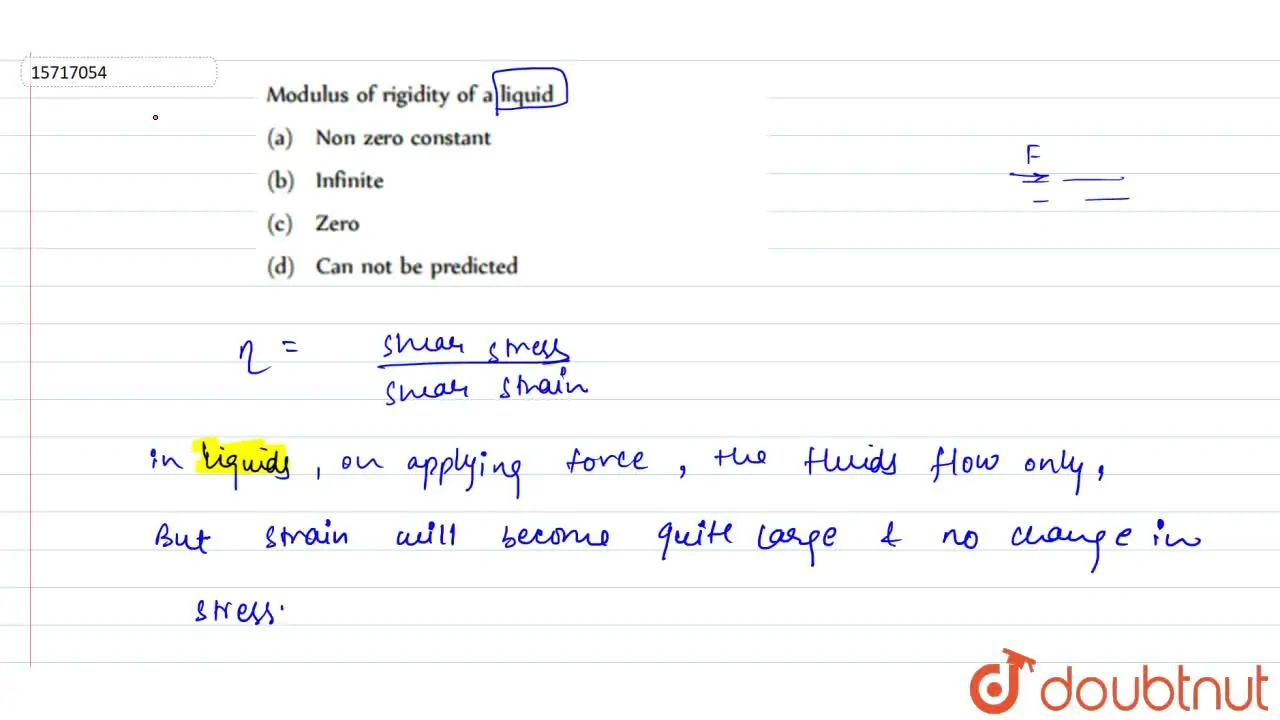 15717054
Modulus of rigidity of a liquid
(a) Non zero constant
(b) Infinite
(c) Zero
(d) Can not be predicted
F
η = shear stress
shear strain
in liquids, on applying force, the fluids flow only,
But strain will become quite large & no change in
stress.
doubtnut